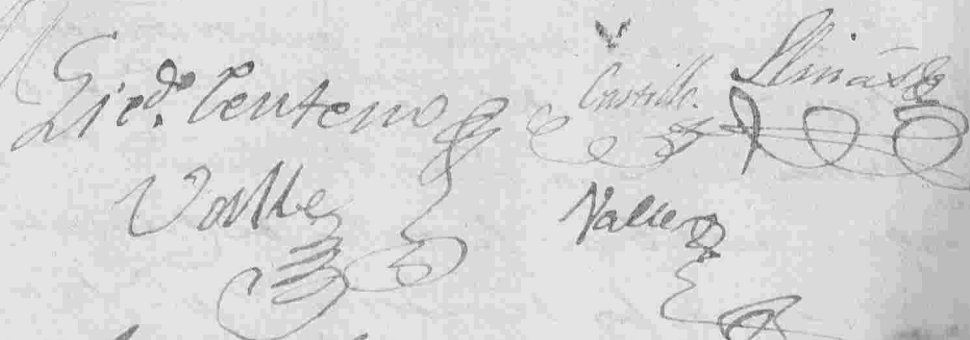 Licdo. Centeno Castillo. Llinás
Valle Valle